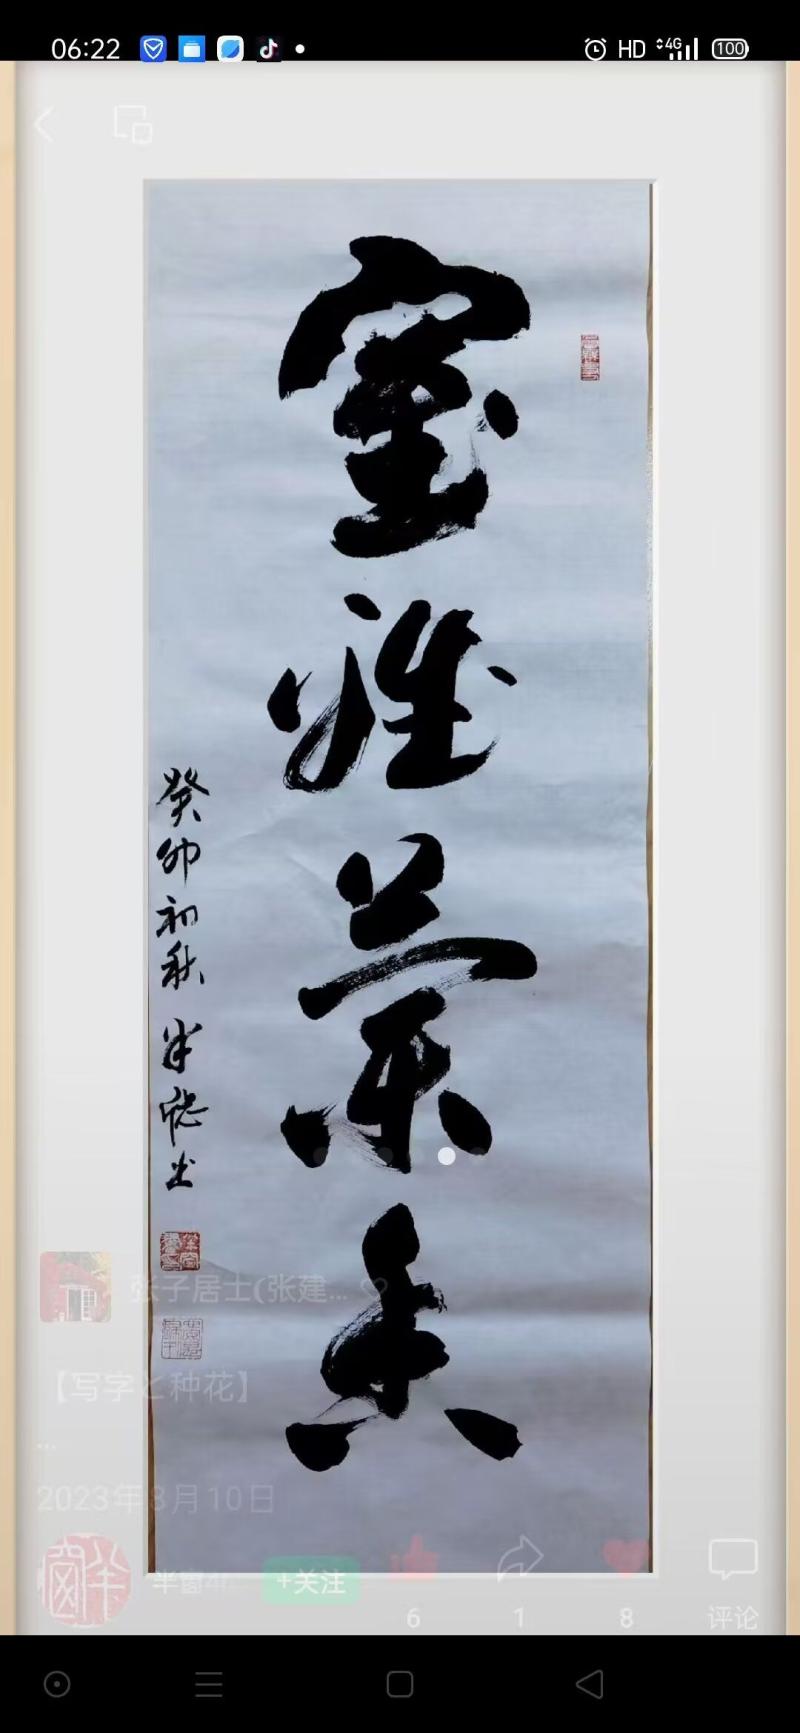 06:22
HD 4G 100
室雅蘭香
癸卯初秋 半窓书
张子居士(张建...
【写字と种花】
...
2023年8月10日
半窗
+关注
6
1
8
评论